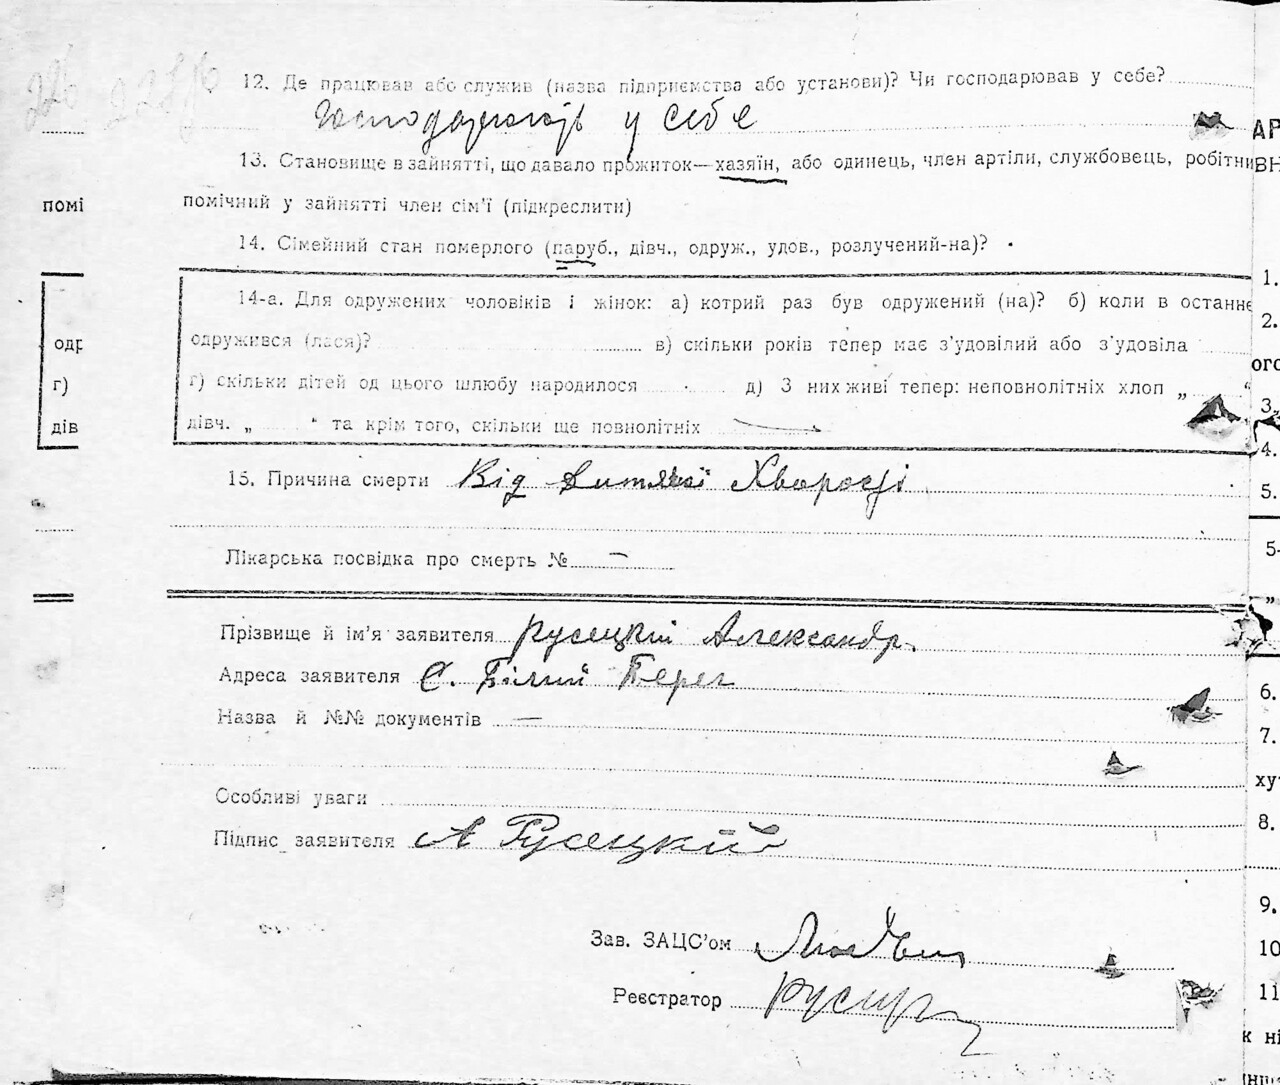 12. Де працював або служив (назва підприємства або установи)? Чи господарював у себе?
у себе
13. Становище в зайнятті, що давало прожиток—хазяїн, або одинець, член артіли, службовець, робітни
помічний у зайнятті член сім'ї (підкреслити)
14. Сімейний стан померлого (паруб., дівч., одруж., удов., розлучений-на)?
14-а. Для одружених чоловіків і жінок: а) котрий раз був одружений (на)? б) коли в останнє
одружився (лася)? в) скільки років тепер має з'удовілий або з'удовіла
г) скільки дітей од цього шлюбу народилося д) З них живі тепер: неповнолітніх хлоп „ “
дівч. „ “ та крім того, скільки ще повнолітніх
15. Причина смерти Від Хворості
Лікарська посвідка про смерть № —
Прізвище й ім'я заявителя Русецкий Александр.
Адреса заявителя С. Білий Берег
Назва й №№ документів —
Особливі уваги
Підпис заявителя А Русецкий
Зав. ЗАЦС'ом
Реєстратор
помі
одр
г)
дів
АР
ВН
1.
2.
ого
3.
4.
5.
5-
„
6.
7.
ху
8.
9.
10
11
к ні